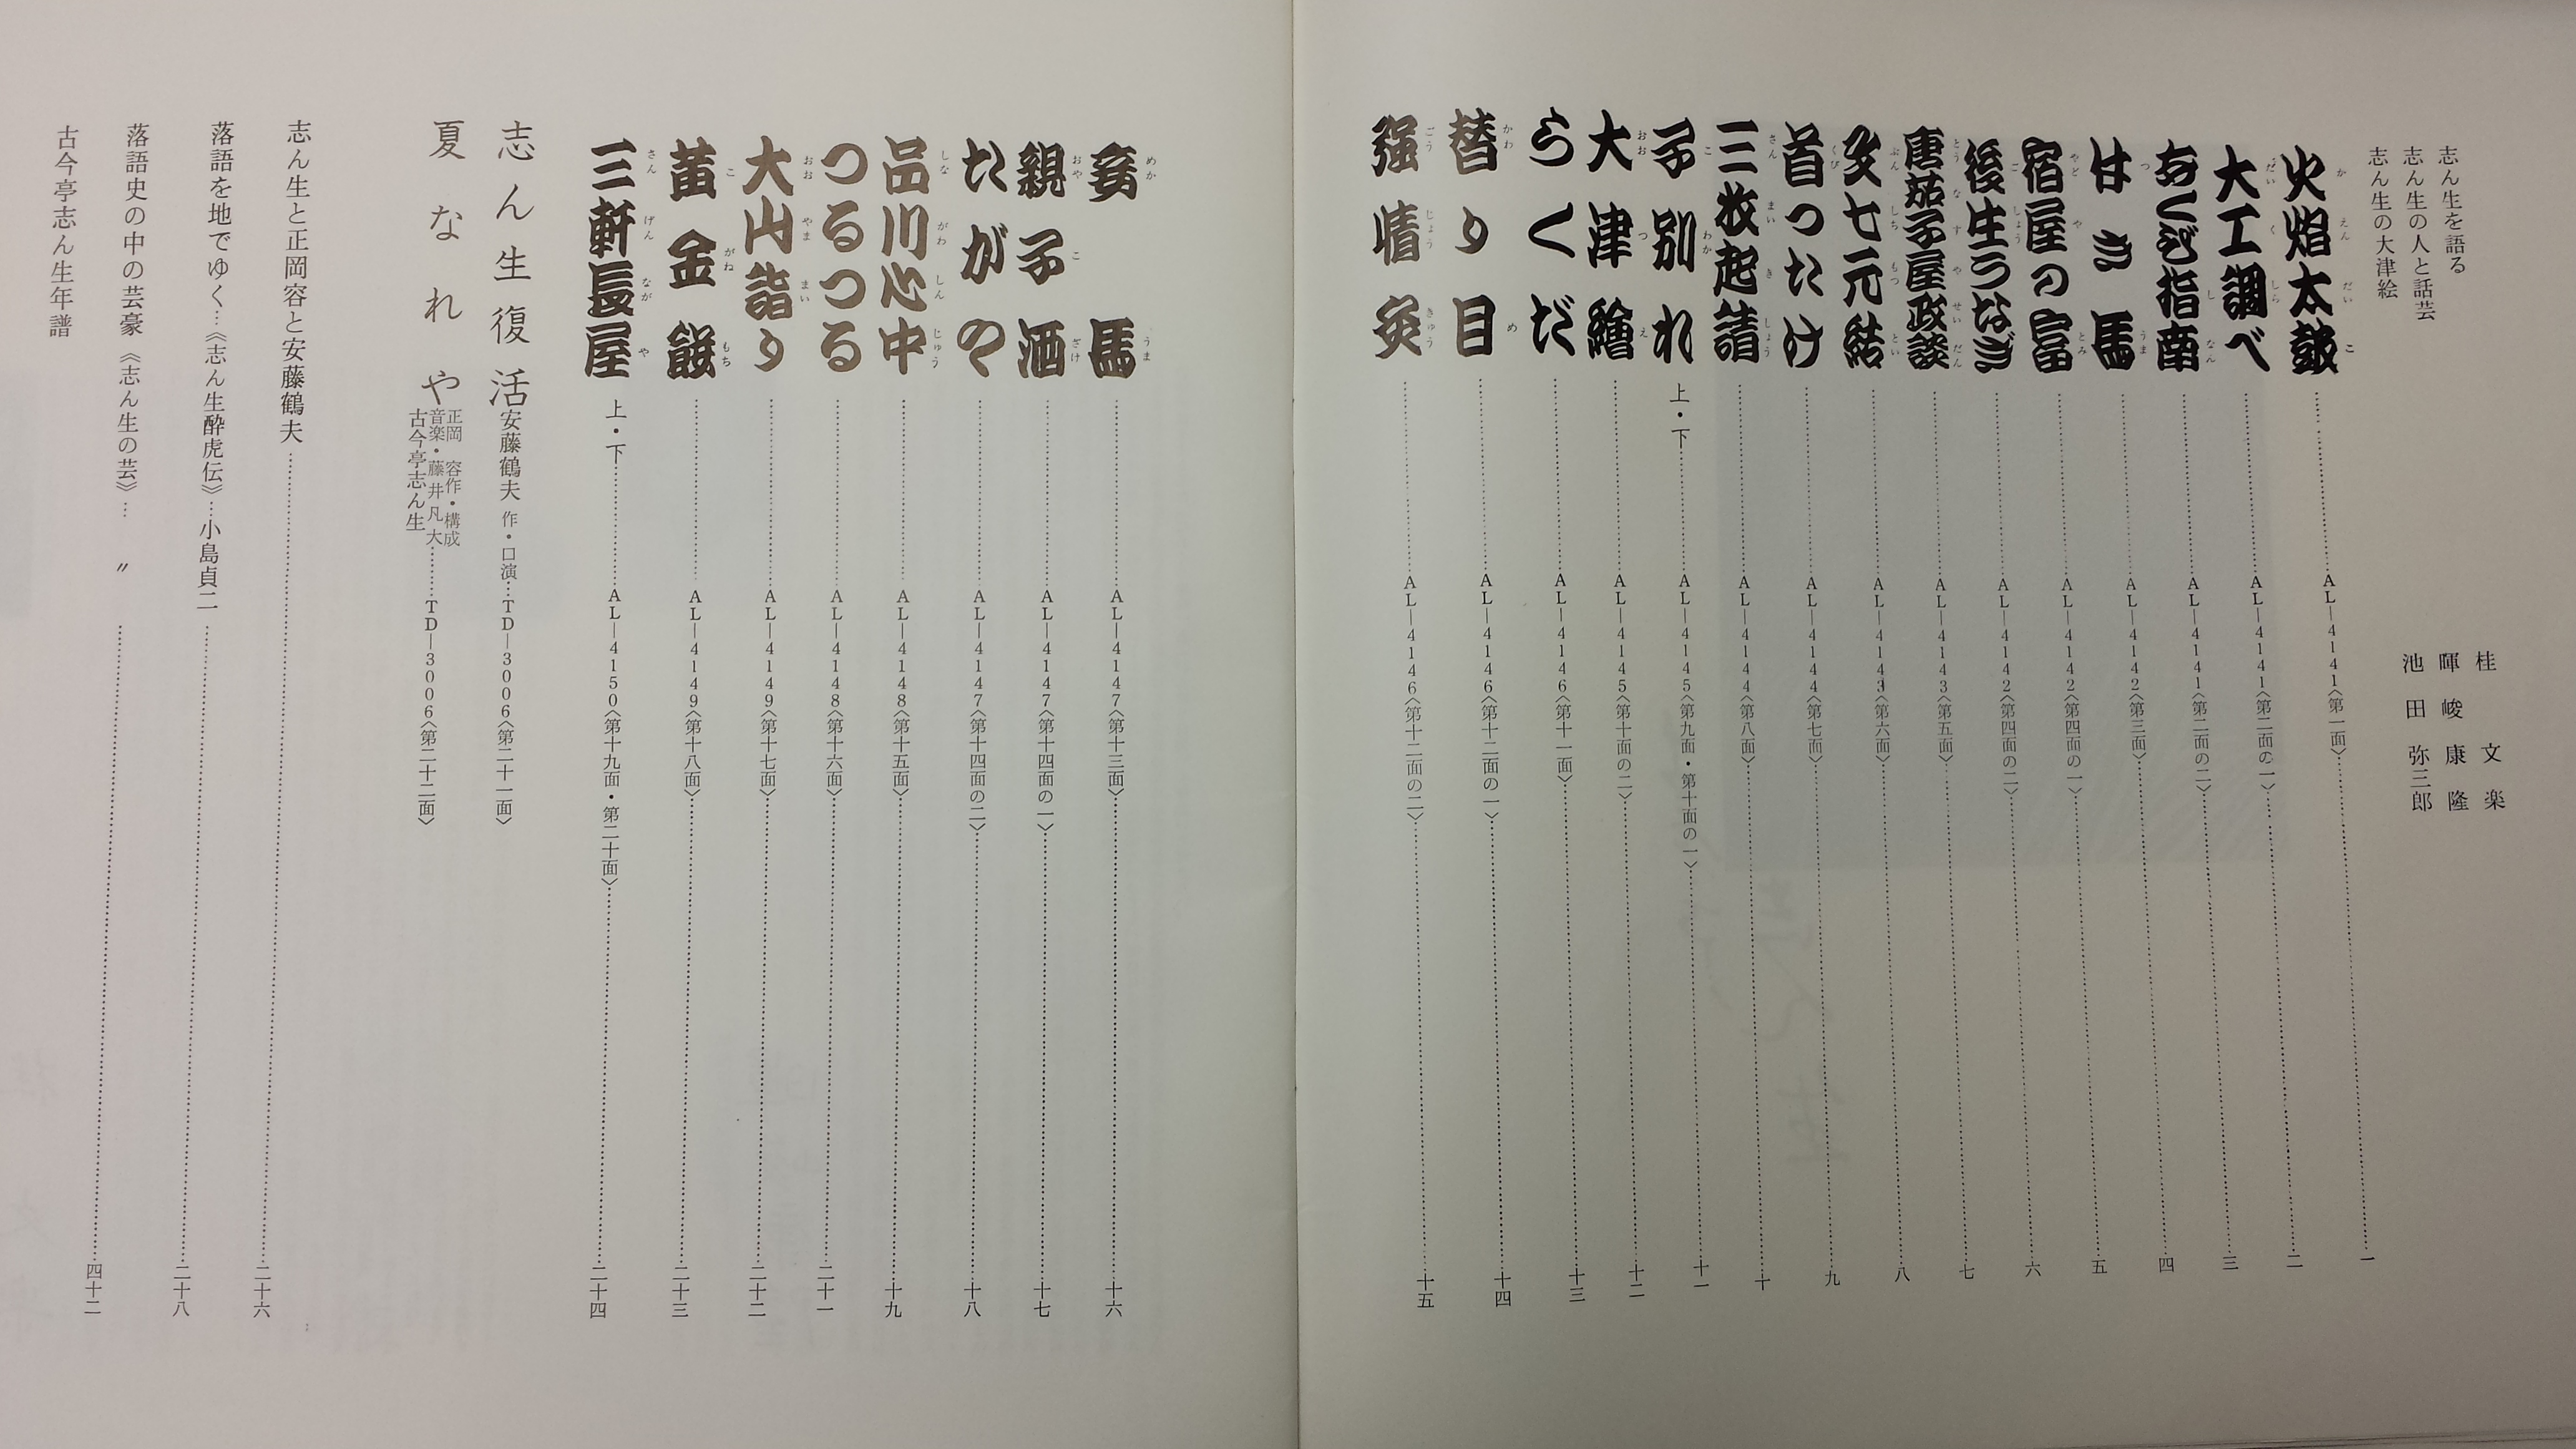 志ん生を語る 桂文楽
志ん生の人と話芸 暉峻康隆
志ん生の大津絵 池田弥三郎
火焔太鼓 AL―4141〈第一面〉 一
大工調べ AL―4141〈第二面の一〉 二
あくび指南 AL―4141〈第二面の二〉 三
付き馬 AL―4142〈第三面〉 四
宿屋の富 AL―4142〈第四面の一〉 五
後生うなぎ AL―4142〈第四面の二〉 六
唐茄子屋政談 AL―4143〈第五面〉 七
文七元結 AL―4143〈第六面〉 八
首ったけ AL―4144〈第七面〉 九
三枚起請 AL―4144〈第八面〉 十
子別れ 上・下 AL―4145〈第九面・第十面の一〉 十一
大津繪 AL―4145〈第十面の二〉 十二
らくだ AL―4146〈第十一面〉 十三
替り目 AL―4146〈第十二面の一〉 十四
强情灸 AL―4146〈第十二面の二〉 十五
妾馬 AL―4147〈第十三面〉 十六
親子酒 AL―4147〈第十四面の一〉 十七
たがや AL―4147〈第十四面の二〉 十八
品川心中 AL―4148〈第十五面〉 十九
つるつる AL―4148〈第十六面〉 二十一
大山詣り AL―4149〈第十七面〉 二十二
黄金餅 AL―4149〈第十八面〉 二十三
三軒長屋 上・下 AL―4150〈第十九面・第二十面〉 二十四
志ん生復活 安藤鶴夫 作・口演 TD―3006〈第二十一面〉
夏なれや 正岡 容作・構成
音楽・藤井凡大
古今亭志ん生 TD―3006〈第二十二面〉
志ん生と正岡容と安藤鶴夫 二十六
落語を地でゆく…《志ん生酔虎伝》…小島貞二 二十八
落語史の中の芸豪《志ん生の芸》… 〃 四十二
古今亭志ん生年譜